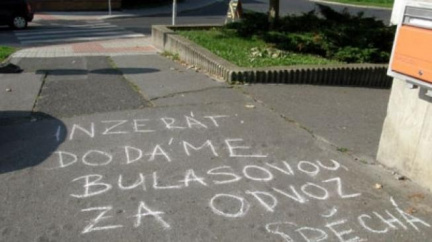 INZERÁT
DODÁME
BULASOVOU
ZA ODVOZ
SPĚCHÁ